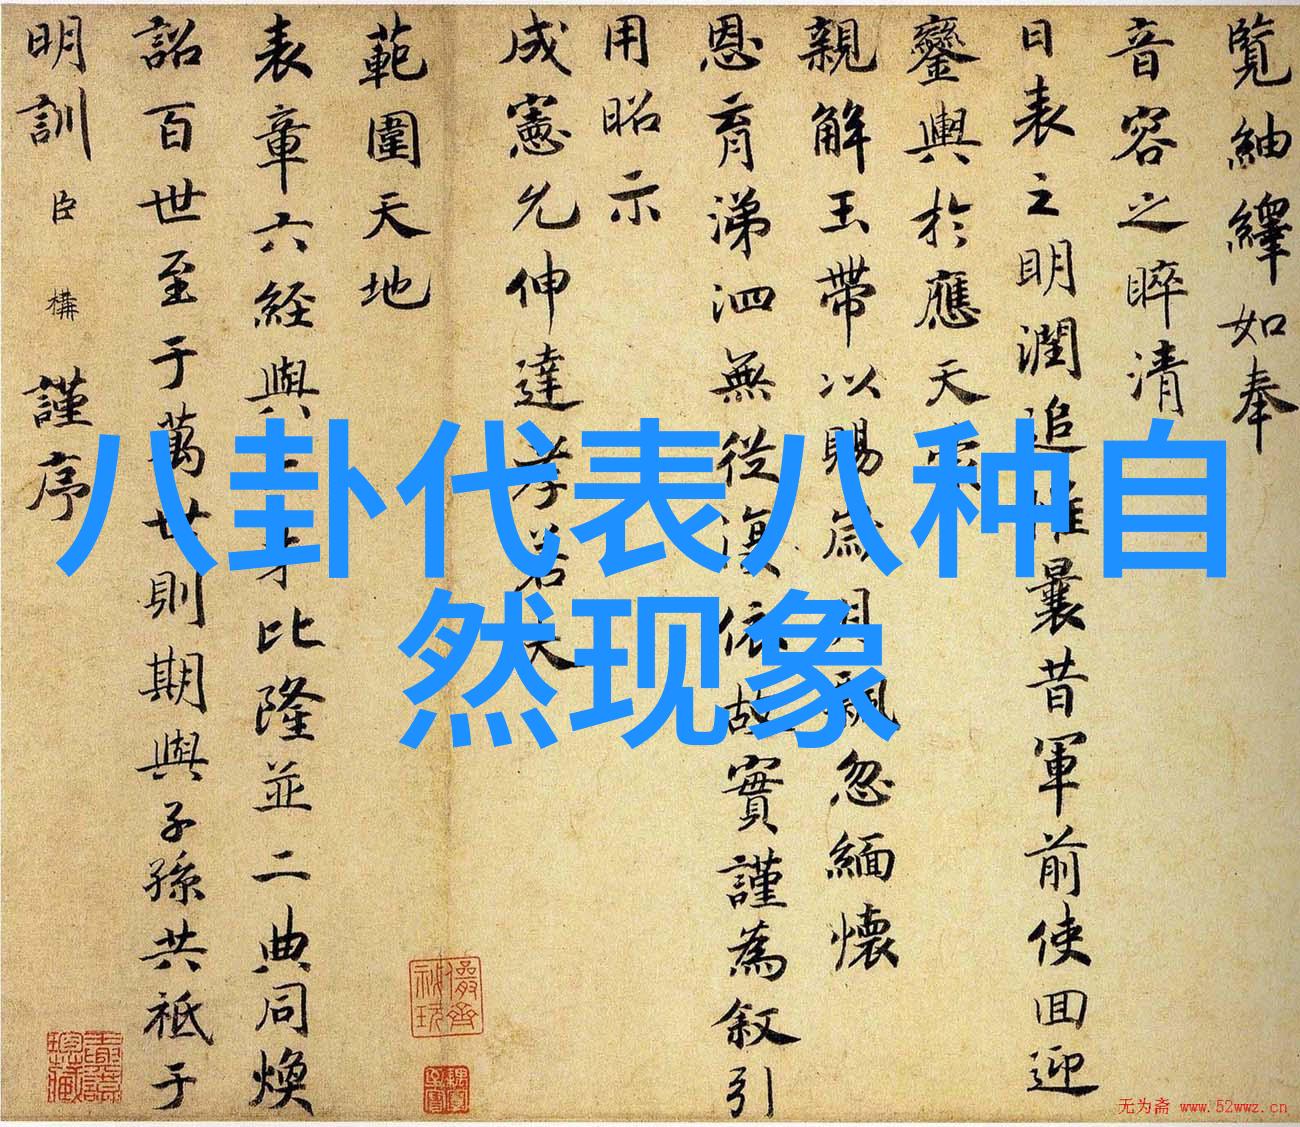 八卦代表八种自
然现象
覽紬繹如奉
音容之睟清
日表之明潤追惟曩昔軍前使回迎
鑾輿於應天
親解玉帶以賜歲月飄忽緬懷
恩育涕泗無從復依故實謹為敘引
用昭示
成憲允伸達孝若夫
範圍天地
表章六経與才比隆並二典同煥
詔百世至于萬世則期與子孫共祗于
明訓臣構謹序
无为斋 www.52wwz.cn